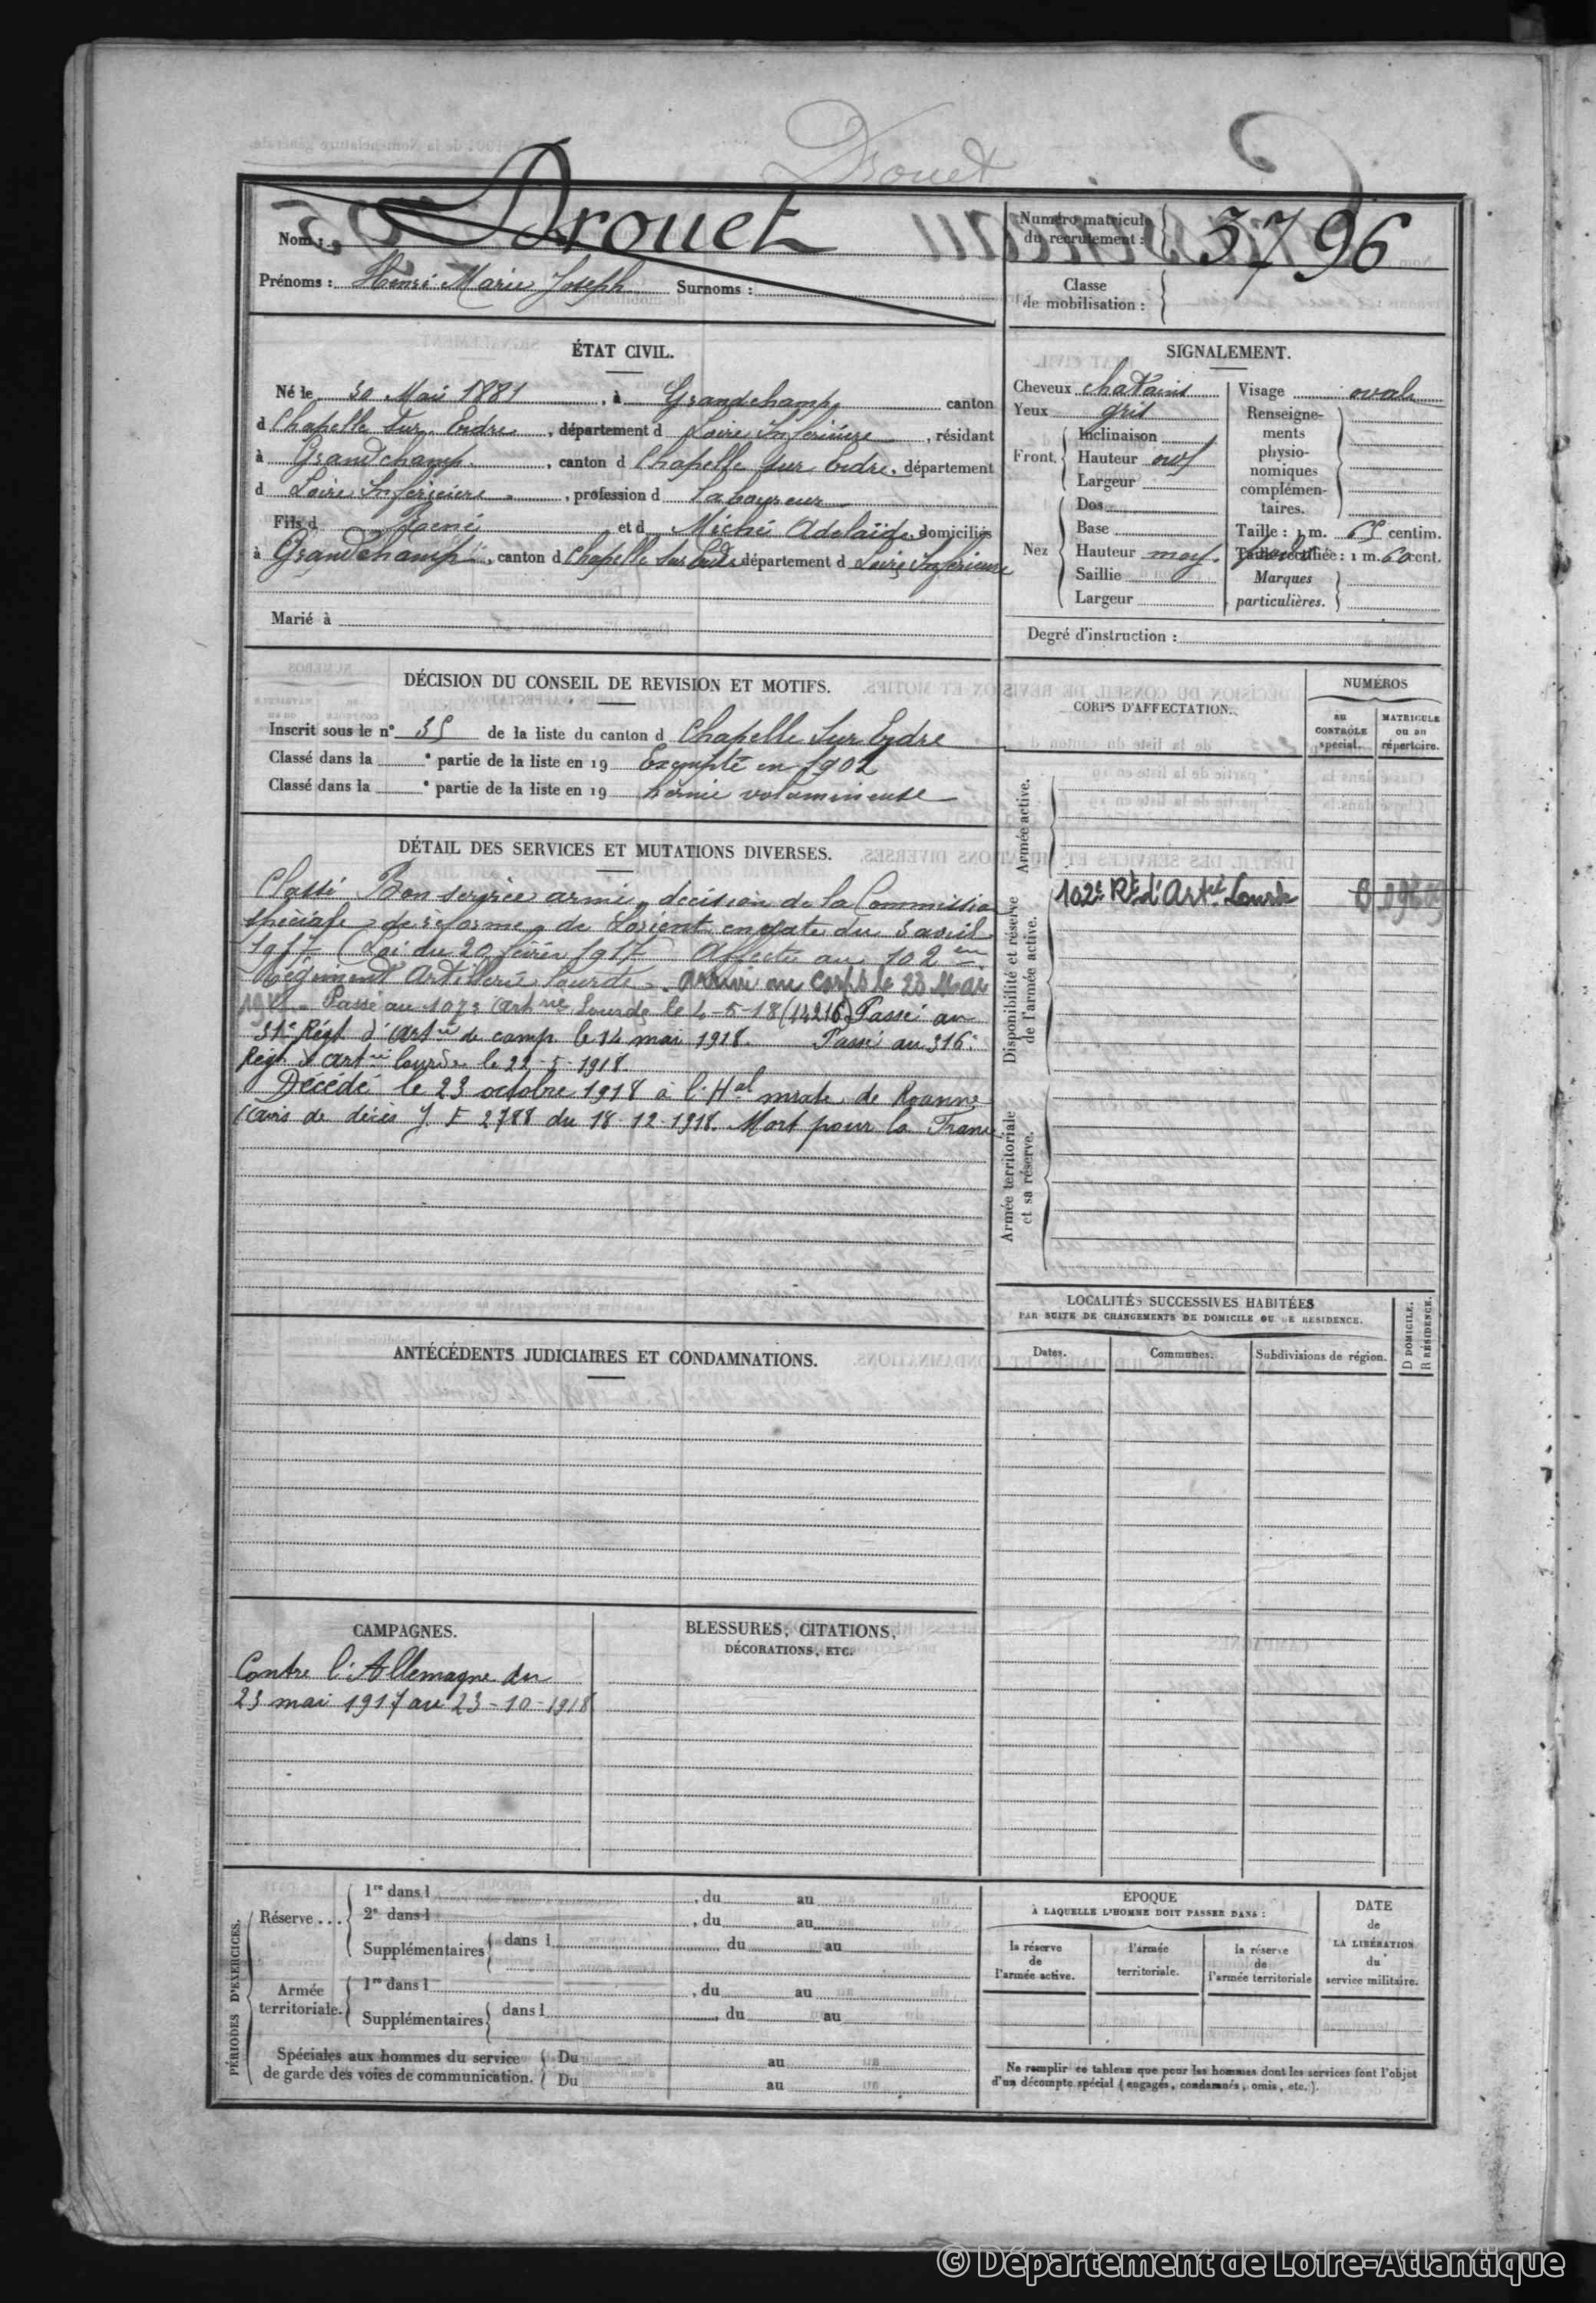 Drouet
Nom : Drouet
Numéro matricule du recrutement : 3796
Prénoms : Henri Marie Joseph Surnoms :
Classe de mobilisation :
ÉTAT CIVIL.
Né le 30 Mai 1881, à Grandchamp canton
d Chapelle sur Erdre, département d Loire Inférieure, résidant
à Grandchamp, canton d Chapelle sur Erdre, département
d Loire Inférieure, profession d laboureur
Fils d René et d Miché Adelaïde domiciliés
à Grandchamp, canton d Chapelle sur Erdre département d Loire Inférieure
Marié à
SIGNALEMENT.
Cheveux chatains
Yeux gris
Front. Inclinaison
Hauteur
Largeur
Nez Dos
Base
Hauteur moy.
Saillie
Largeur
Visage ovale
Renseigne-
ments
physio-
nomiques
complémen-
taires.
Taille : 1 m. 65 centim.
Taille rectifiée : 1 m. 60 cent.
Marques
particulières.
Degré d'instruction :
DÉCISION DU CONSEIL DE REVISION ET MOTIFS.
Inscrit sous le n° 35 de la liste du canton d Chapelle sur Erdre
Classé dans la e partie de la liste en 19 Exempté en 1902
Classé dans la e partie de la liste en 19 hernie volumineuse
CORPS D'AFFECTATION.
NUMÉROS
au CONTRÔLE spécial.
MATRICULE ou au répertoire.
Armée active.
Disponibilité et réserve de l'armée active.
102e Rt d'Artie Lourde
Armée territoriale et sa réserve.
DÉTAIL DES SERVICES ET MUTATIONS DIVERSES.
Classé Bon service armé, décision de la Commission
spéciale de réforme de Lorient en date du 3 avril
1917 (Loi du 20 février 1917 Affecté au 102 em
Régiment Artillerie lourde. Arrivé au corps le 23 Mai
1917. Passé au 107e Artrie Lourde le 4-5-18 (14216) Passé au
31e Régt d'Artie de camp. le 14 mai 1918. Passé au 316e
Régt d'Artie lourde le 22-5-1918.
Décédé le 23 octobre 1918 à l'Hal mixte de Roanne
(avis de décès 2788 du 18-12-1918. Mort pour la France
ANTÉCÉDENTS JUDICIAIRES ET CONDAMNATIONS.
LOCALITÉS SUCCESSIVES HABITÉES
PAR SUITE DE CHANGEMENTS DE DOMICILE OU DE RÉSIDENCE.
Dates.
Communes.
Subdivisions de région.
D DOMICILE.
R RÉSIDENCE.
CAMPAGNES.
Contre l'Allemagne du
23 mai 1917 au 23-10-1918
BLESSURES, CITATIONS,
DÉCORATIONS, ETC.
PÉRIODES D'EXERCICES.
Réserve...
1re dans l , du au
2e dans l , du au
Supplémentaires dans l du au
Armée territoriale.
1re dans l , du au
Supplémentaires dans l , du au
Spéciales aux hommes du service de garde des voies de communication.
Du au
Du au
ÉPOQUE
À LAQUELLE L'HOMME DOIT PASSER DANS :
la réserve de l'armée active.
l'armée territoriale.
la réserve de l'armée territoriale
DATE de LA LIBÉRATION du service militaire.
Ne remplir ce tableau que pour les hommes dont les services font l'objet
d'un décompte spécial (engagés, condamnés, omis, etc.).
© Département de Loire-Atlantique